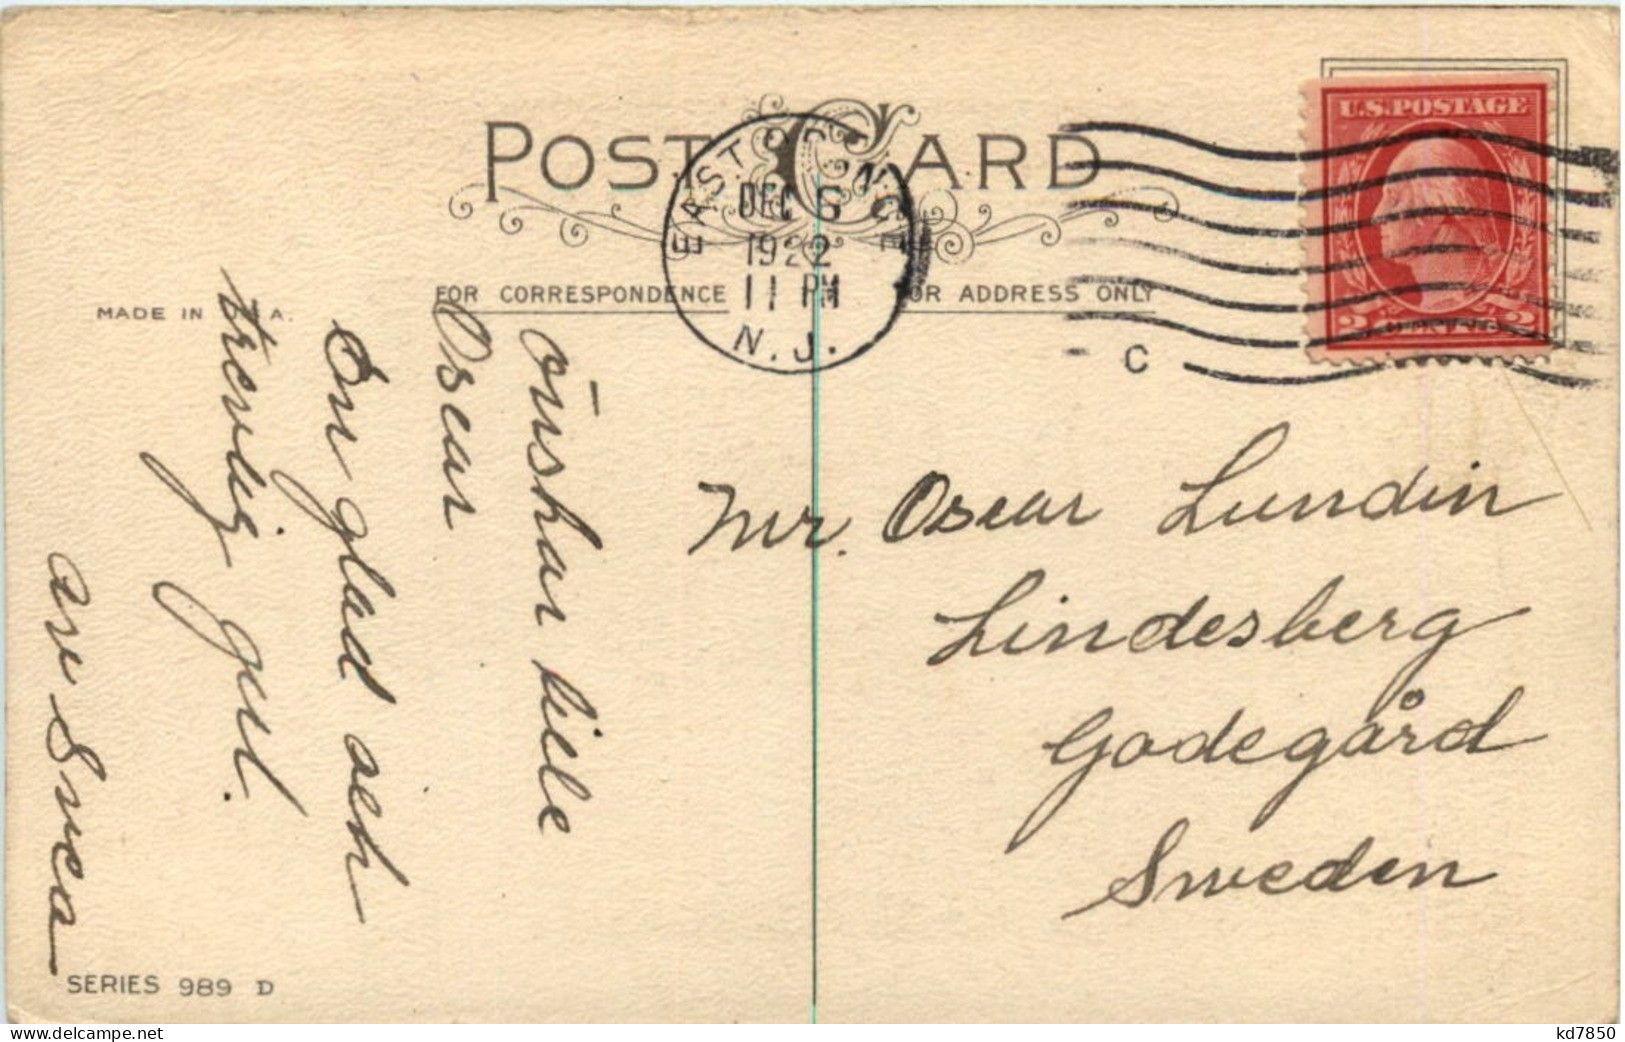 POST CARD
EAST ORANGE
DEC 6
1922
11 PM
N.J.
C
U.S.POSTAGE
2 2
FOR CORRESPONDENCE
FOR ADDRESS ONLY
MADE IN U.S.A.
Önskar lille
Oscar
En glad och
trevlig jul.
av Svea
Mr. Oscar Lundin
Lindesberg
Godegård
Sweden
SERIES 989 D
www.delcampe.net
kd7850